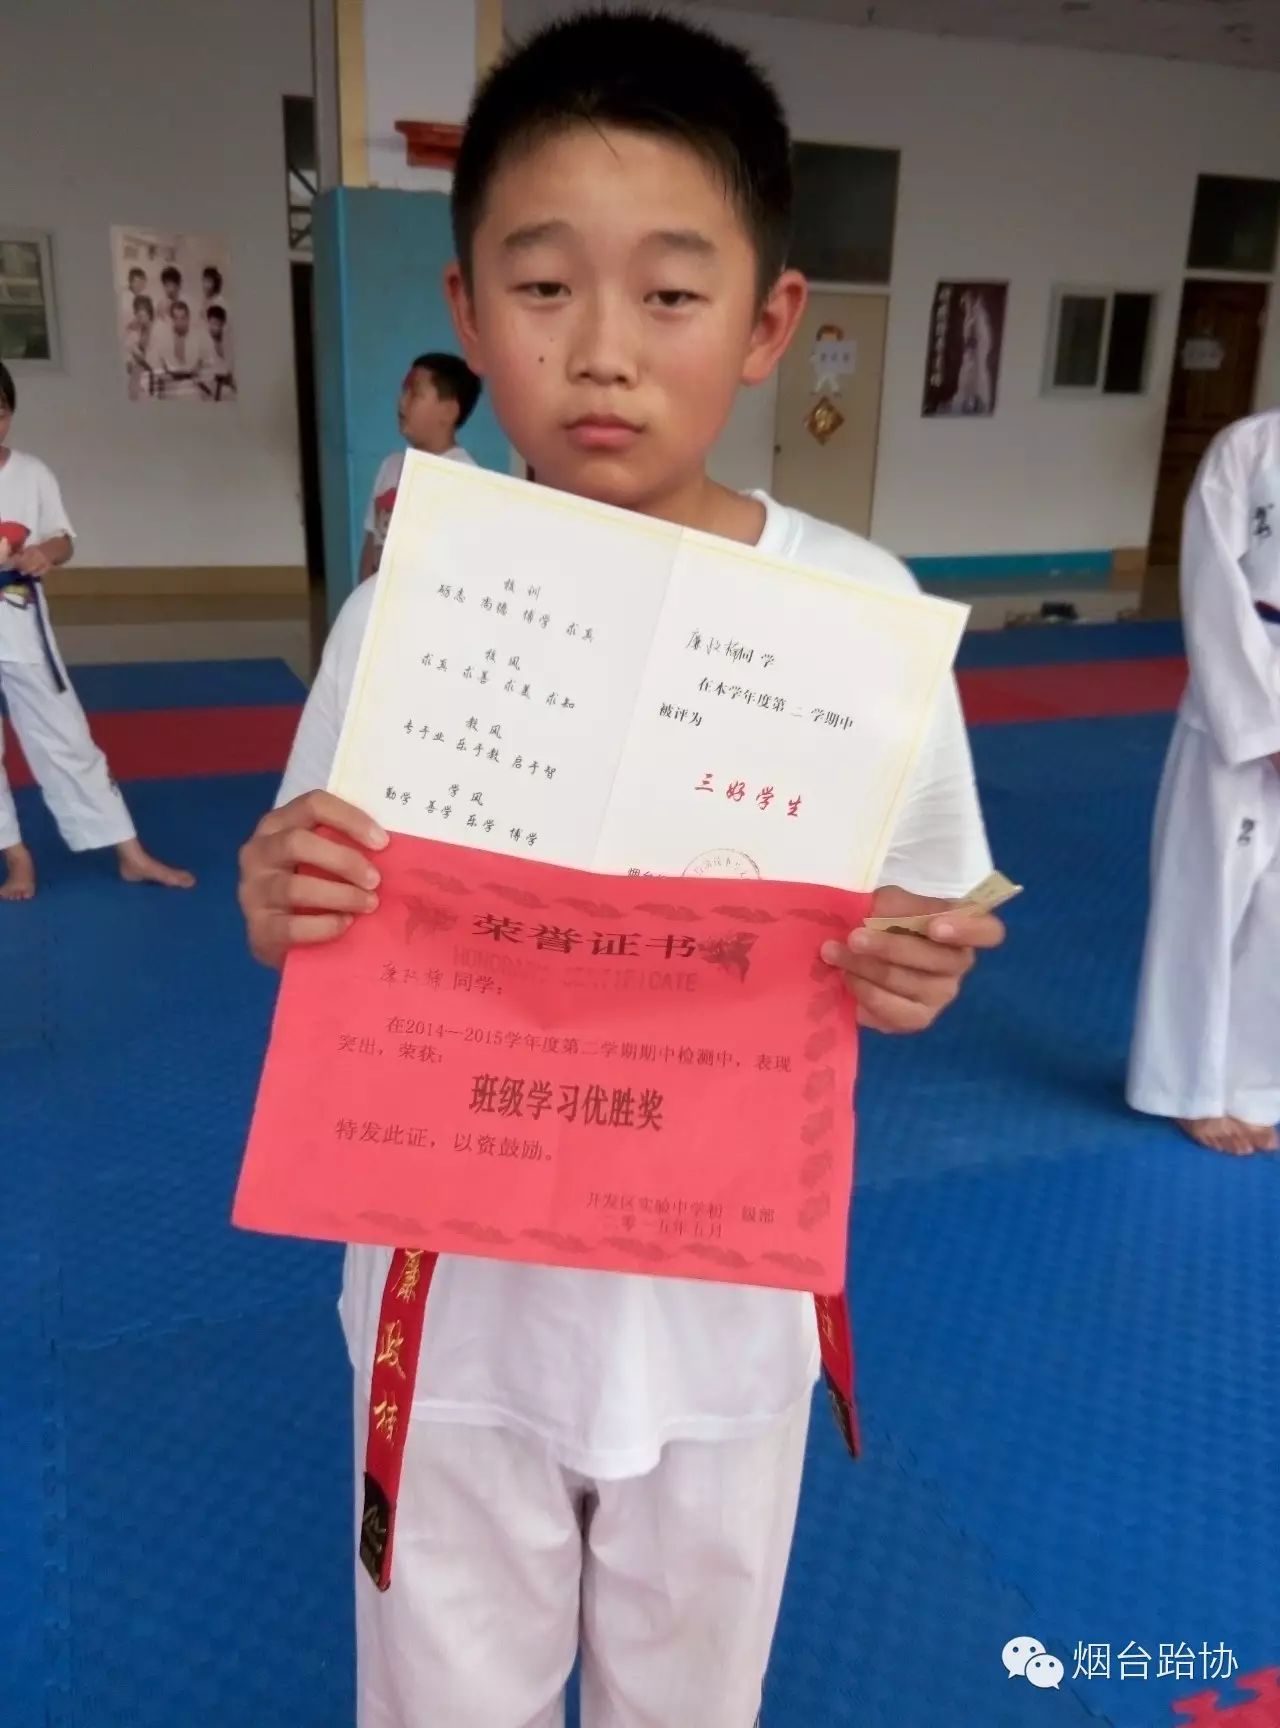 校训
砺志 尚德 博学 求真
校风
求真 求善 求美 求知
教风
专于业 乐于教 启于智
学风
勤学 善学 乐学 博学
同学
在本学年度第二学期中
被评为
三好学生
烟台
荣誉证书
HONORARY CERTIFICATE
同学：
在2014—2015学年度第二学期期中检测中，表现
突出，荣获：
班级学习优胜奖
特发此证，以资鼓励。
开发区实验中学初一级部
二零一五年五月
廉政
烟台跆协